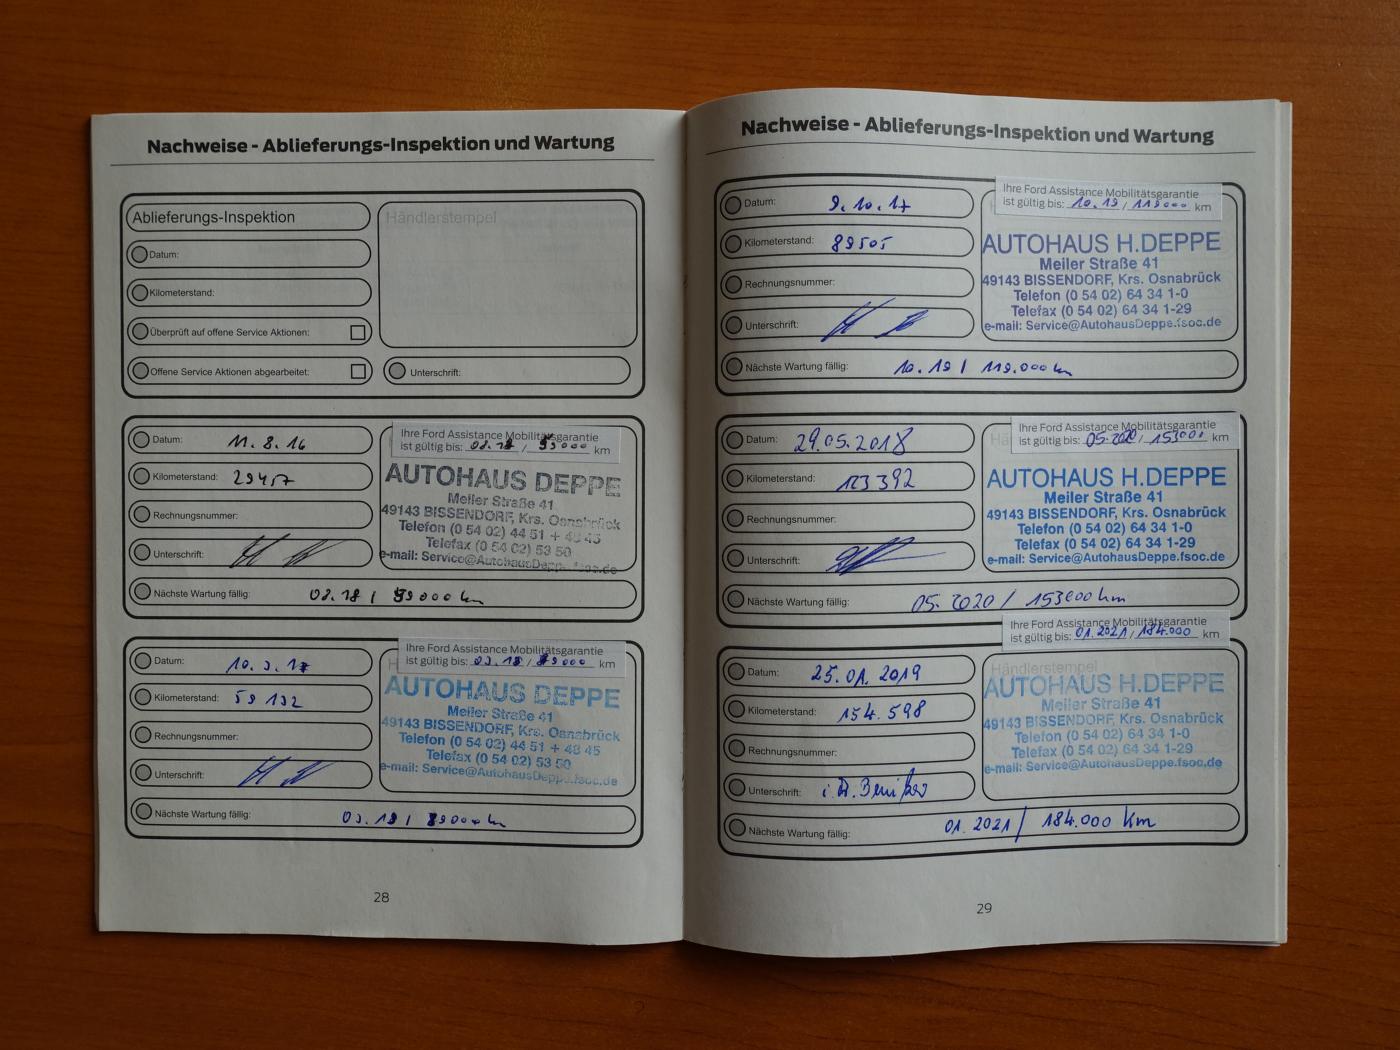 Nachweise - Ablieferungs-Inspektion und Wartung
Ablieferungs-Inspektion
Händlerstempel
Datum:
Kilometerstand:
Überprüft auf offene Service Aktionen:
Offene Service Aktionen abgearbeitet:
Unterschrift:
Datum: 11. 8. 16
Kilometerstand: 29457
Rechnungsnummer:
Unterschrift:
Nächste Wartung fällig: 08.18 / 59000 km
Ihre Ford Assistance Mobilitätsgarantie
ist gültig bis: 08.18 / 59000 km
AUTOHAUS DEPPE
Meller Straße 41
49143 BISSENDORF, Krs. Osnabrück
Telefon (0 54 02) 44 51 + 48 45
Telefax (0 54 02) 53 50
e-mail: Service@AutohausDeppe.fsoc.de
Datum: 10. 3. 17
Kilometerstand: 59 132
Rechnungsnummer:
Unterschrift:
Nächste Wartung fällig: 03.19 / 89000 km
Ihre Ford Assistance Mobilitätsgarantie
ist gültig bis: 03.19 / 89000 km
AUTOHAUS DEPPE
Meller Straße 41
49143 BISSENDORF, Krs. Osnabrück
Telefon (0 54 02) 44 51 + 48 45
Telefax (0 54 02) 53 50
e-mail: Service@AutohausDeppe.fsoc.de
28
Nachweise - Ablieferungs-Inspektion und Wartung
Datum: 9. 10. 17
Kilometerstand: 89505
Rechnungsnummer:
Unterschrift:
Nächste Wartung fällig: 10. 19 / 119.000 km
Ihre Ford Assistance Mobilitätsgarantie
ist gültig bis: 10.19 / 119000 km
AUTOHAUS H.DEPPE
Meller Straße 41
49143 BISSENDORF, Krs. Osnabrück
Telefon (0 54 02) 64 34 1-0
Telefax (0 54 02) 64 34 1-29
e-mail: Service@AutohausDeppe.fsoc.de
Datum: 29.05.2018
Kilometerstand: 123 392
Rechnungsnummer:
Unterschrift:
Nächste Wartung fällig: 05. 2020 / 153000 km
Ihre Ford Assistance Mobilitätsgarantie
ist gültig bis: 05.2020 / 153000 km
AUTOHAUS H.DEPPE
Meller Straße 41
49143 BISSENDORF, Krs. Osnabrück
Telefon (0 54 02) 64 34 1-0
Telefax (0 54 02) 64 34 1-29
e-mail: Service@AutohausDeppe.fsoc.de
Datum: 25. 01. 2019
Kilometerstand: 154. 598
Rechnungsnummer:
Unterschrift: i.A.
Nächste Wartung fällig: 01. 2021 / 184.000 km
Ihre Ford Assistance Mobilitätsgarantie
ist gültig bis: 01.2021 / 184.000 km
Händlerstempel
AUTOHAUS H.DEPPE
Meller Straße 41
49143 BISSENDORF, Krs. Osnabrück
Telefon (0 54 02) 64 34 1-0
Telefax (0 54 02) 64 34 1-29
e-mail: Service@AutohausDeppe.fsoc.de
29